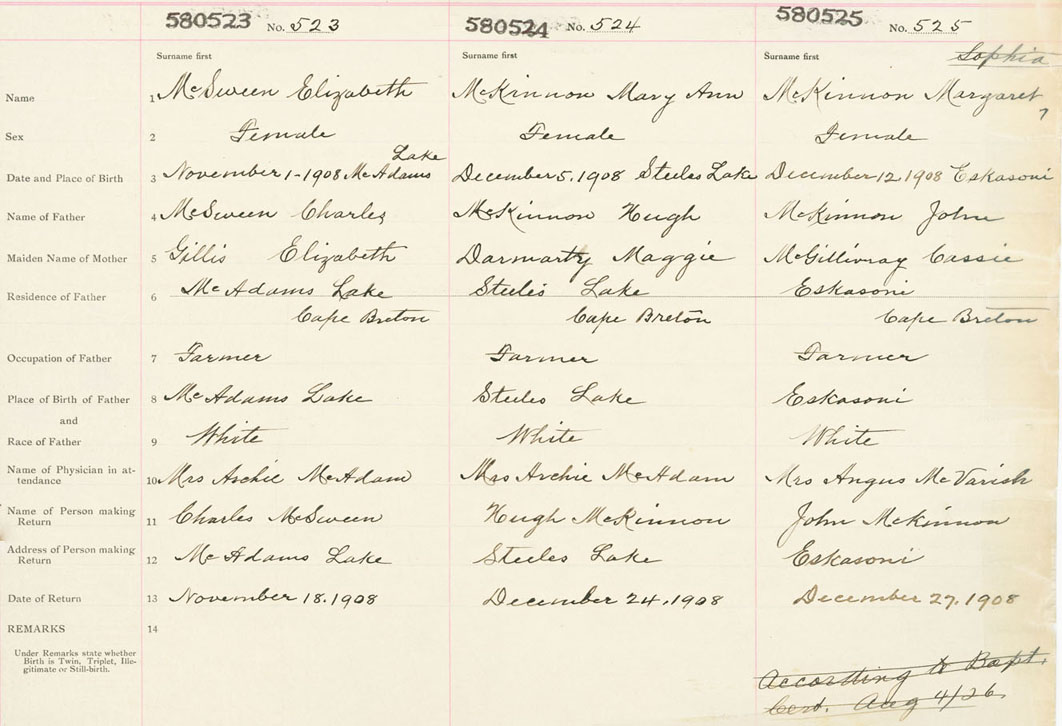 580523 No. 523 580524 No. 524 580525 No. 525
Surname first Surname first Surname first Sophia
Name 1 McSween Elizabeth McKinnon Mary Ann McKinnon Margaret
Sex 2 Female Female Female
Lake
Date and Place of Birth 3 November 1-1908 McAdams December 5, 1908 Steeles Lake December 12, 1908 Eskasoni
Name of Father 4 McSween Charles McKinnon Hugh McKinnon John
Maiden Name of Mother 5 Gillis Elizabeth Darmarty Maggie McGillivray Cassie
Residence of Father 6 McAdams Lake Steeles Lake Eskasoni
Cape Breton Cape Breton Cape Breton
Occupation of Father 7 Farmer Farmer Farmer
Place of Birth of Father 8 McAdams Lake Steeles Lake Eskasoni
and
Race of Father 9 White White White
Name of Physician in at-
tendance 10 Mrs Archie McAdam Mrs Archie McAdam Mrs Angus McVarish
Name of Person making
Return 11 Charles McSween Hugh McKinnon John McKinnon
Address of Person making
Return 12 McAdams Lake Steeles Lake Eskasoni
Date of Return 13 November 18, 1908 December 24, 1908 December 27, 1908
REMARKS 14
Under Remarks state whether
Birth is Twin, Triplet, Ille-
gitimate or Still-birth.
According to Bapt.
Cert. Aug 4/26.